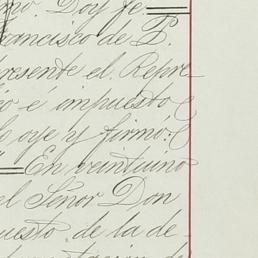 mo. Doy fe.
rancisco de P.
presente el Repre-
é impuesto
oye y firmó:
En veintiuno
el Señor Don
uesto de la de-